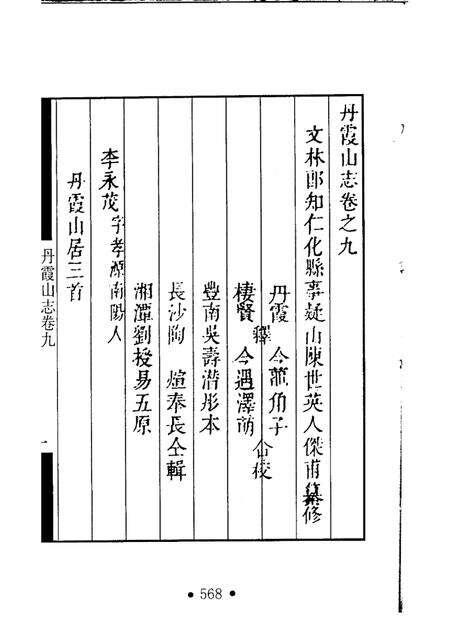 丹霞山志卷之九
文林郎知仁化縣事疑山陳世英人傑甫纂修
丹霞 釋 今 角子
棲賢 今遇澤萌 仝校
豐南吳壽潛彤本
長沙陶煊奉長仝輯
湘潭劉授易五原
李永茂字孝源南陽人
丹霞山居三首
丹霞山志卷九
一
• 568 •